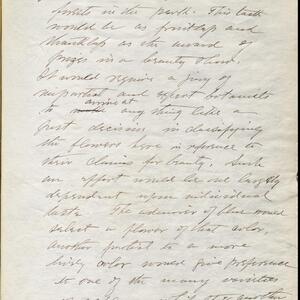 forests in the park. This task
would be as fruitless and
thankless as the award of
prizes in a beauty show.
It would require a jury of
impartial and expert botanists
to make arrive at any thing like a
just decision, in classifying
the flowers here in reference to
their claims for beauty. Such
an effort would be one largely
dependent upon individual
taste. The admirer of blue would
select a flower of that color,
another partial to a more
lively color would give preference
to one of the many varieties